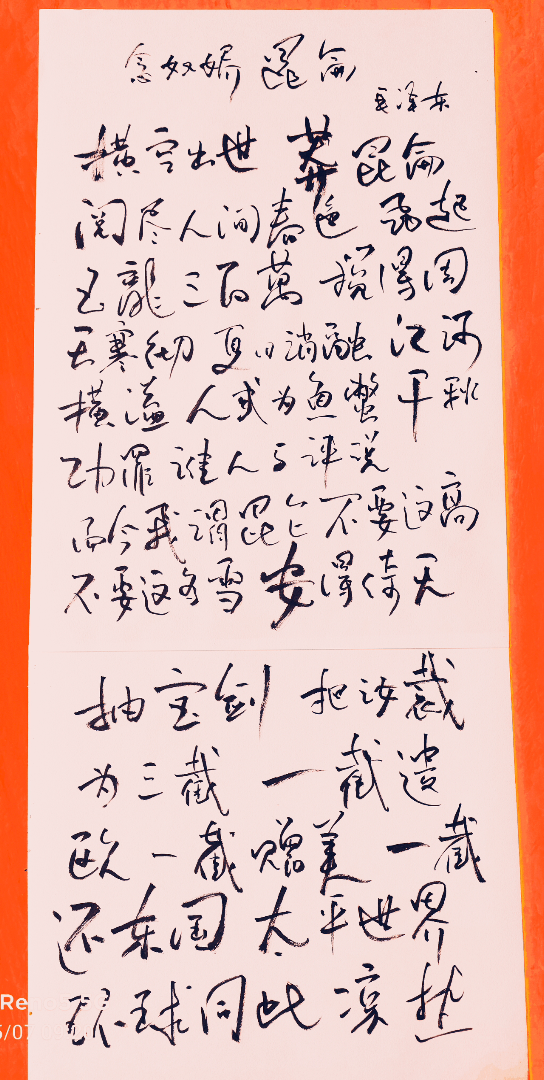 念奴娇 昆仑
毛泽东
横空出世 莽昆仑
阅尽人间春色 飛起
玉龍三百萬 搅得周
天寒彻 夏日消融 江河
横溢 人或为魚鳖 千秋
功罪 谁人与评说
而今我谓昆仑 不要这高
不要这多雪 安得倚天
抽宝剑 把汝裁
为三截 一截遗
欧 一截赠美 一截
还东国 太平世界
环球同此凉热
5/07